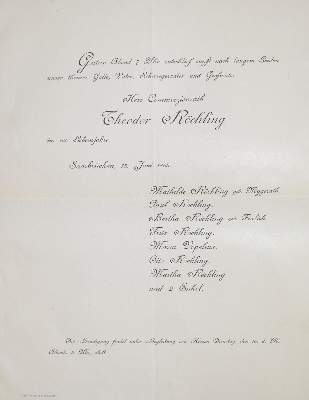 Gestern Abend 7 Uhr entschlief sanft nach langem Leiden
unser theurer Gatte, Vater, Schwiegervater und Großvater
Herr Commerzienrath
Theodor Röchling
im Lebensjahre.
Saarbrücken, 12. Juni
Mathilde Röchling geb.
Paul Röchling.
Bertha Röchling geb.
Fritz Röchling.
Maria Vopelius.
Otto Röchling.
Martha Röchling
und 2 Enkel.
Die Beerdigung findet unter Begleitung von Herren Dienstag den d. Mts.
Abends Uhr, statt.